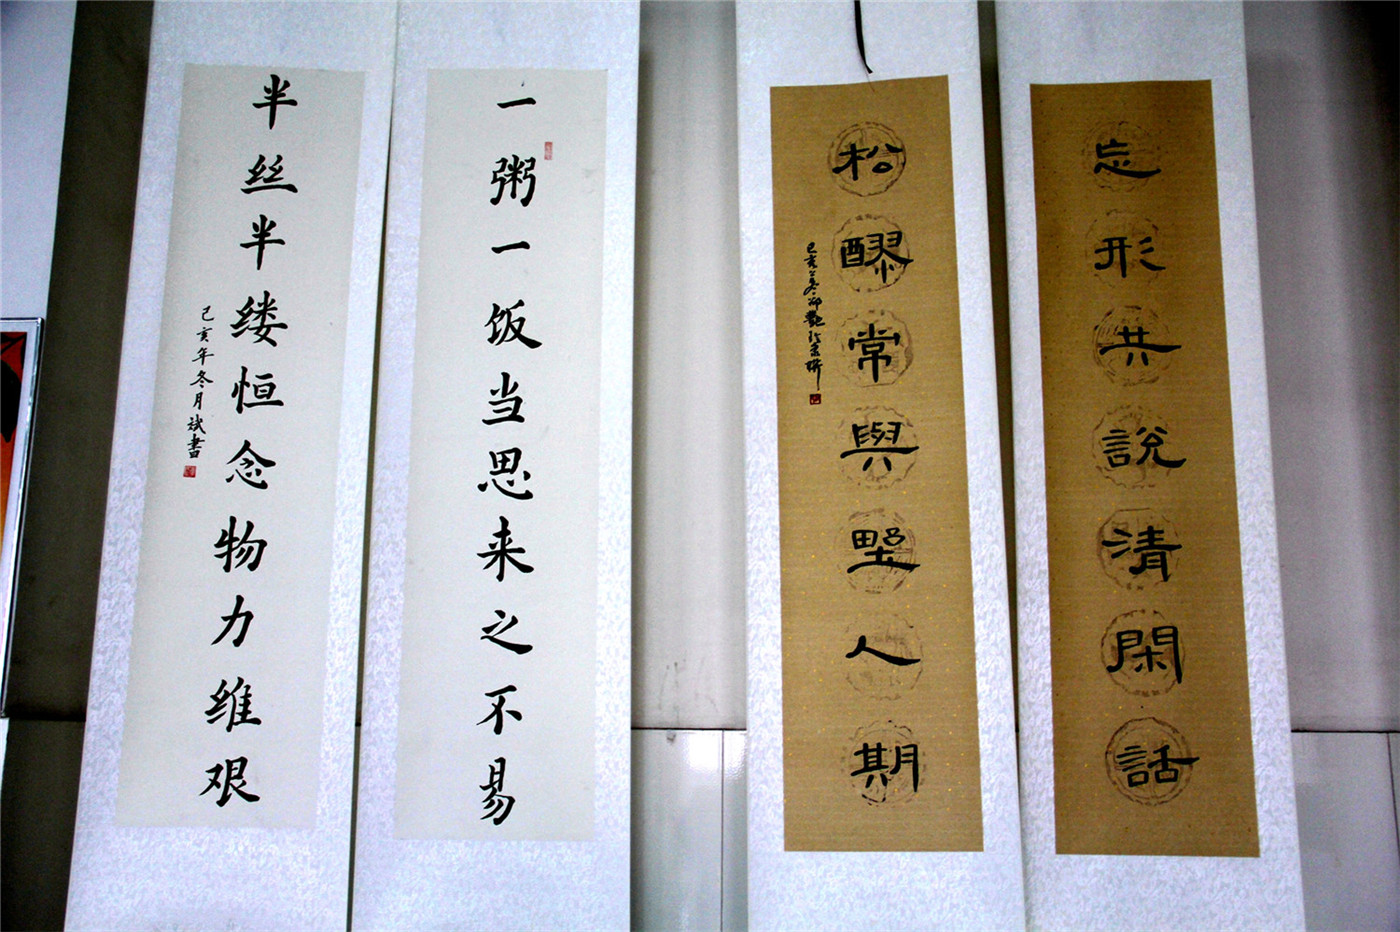 忘形共說清閑話
松醪常與野人期
己亥
一粥一饭当思来之不易
半丝半缕恒念物力维艰
己亥年冬月斌書